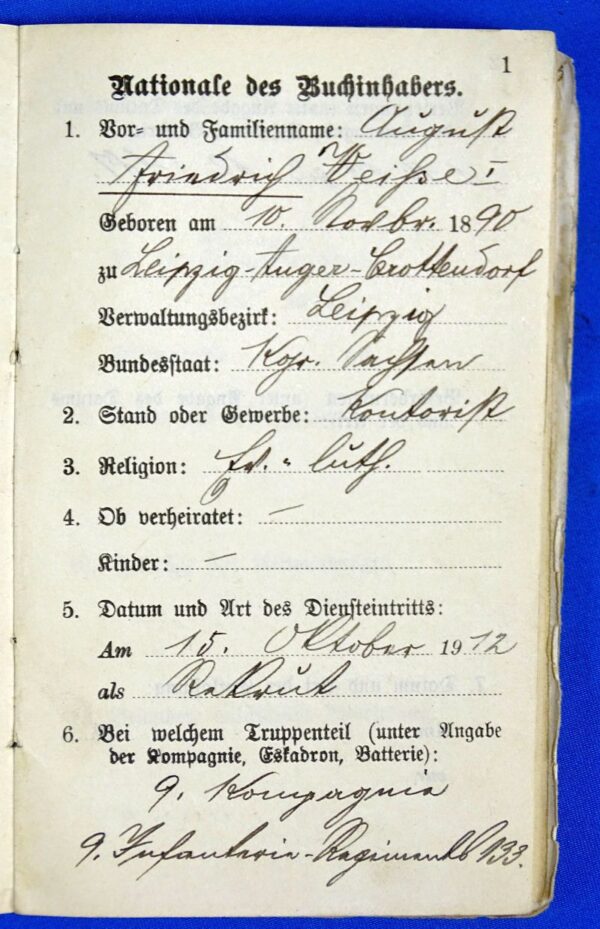 1
Nationale des Buchinhabers.
1. Vor- und Familienname: August
Friedrich Weiße I
Geboren am 10. Novbr. 1890
zu Leipzig-Anger-Crottendorf
Verwaltungsbezirk: Leipzig
Bundesstaat: Kgr. Sachsen
2. Stand oder Gewerbe: Kontorist
3. Religion: Ev.-luth.
4. Ob verheiratet: —
Kinder: —
5. Datum und Art des Diensteintritts:
Am 15. Oktober 1912
als Rekrut
6. Bei welchem Truppenteil (unter Angabe
der Kompagnie, Eskadron, Batterie):
9. Kompagnie
9. Infanterie-Regiments 133.